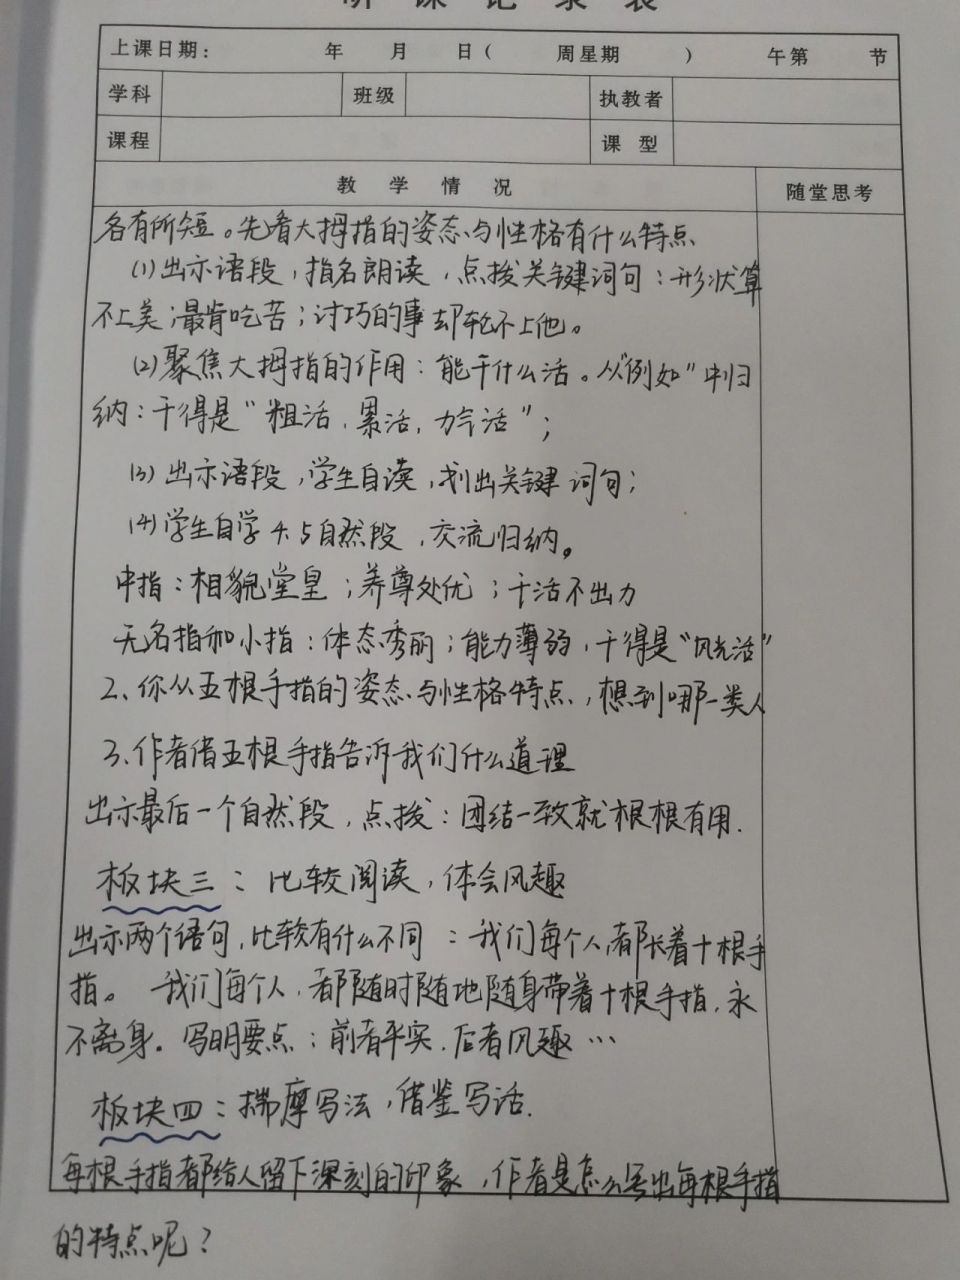 听课记录表
上课日期： 年 月 日（ 周星期 ） 午第 节
学科 班级 执教者
课程 课型
教学情况 随堂思考
各有所短。先看大拇指的姿态与性格有什么特点
(1)出示语段，指名朗读，点拨关键词句：形状算
不上美；最肯吃苦；讨巧的事却轮不上他。
(2)聚焦大拇指的作用：能干什么活。从“例如”中归
纳：干得是“粗活，累活，力气活”；
(3)出示语段，学生自读，划出关键词句；
(4)学生自学4.5自然段，交流归纳。
中指：相貌堂皇；养尊处优；干活不出力
无名指和小指：体态秀丽；能力薄弱，干得是“风光活”
2、你从五根手指的姿态与性格特点，想到哪一类人
3、作者借五根手指告诉我们什么道理
出示最后一个自然段，点拨：团结一致就根根有用.
板块三：比较阅读，体会风趣
出示两个语句，比较有什么不同：我们每个人，都长着十根手
指。 我们每个人，都随时随地随身带着十根手指，永
不离身。写明要点：前者平实，后者风趣…
板块四：揣摩写法，借鉴写话.
每根手指都给人留下深刻的印象，作者是怎么写出每根手指
的特点呢？